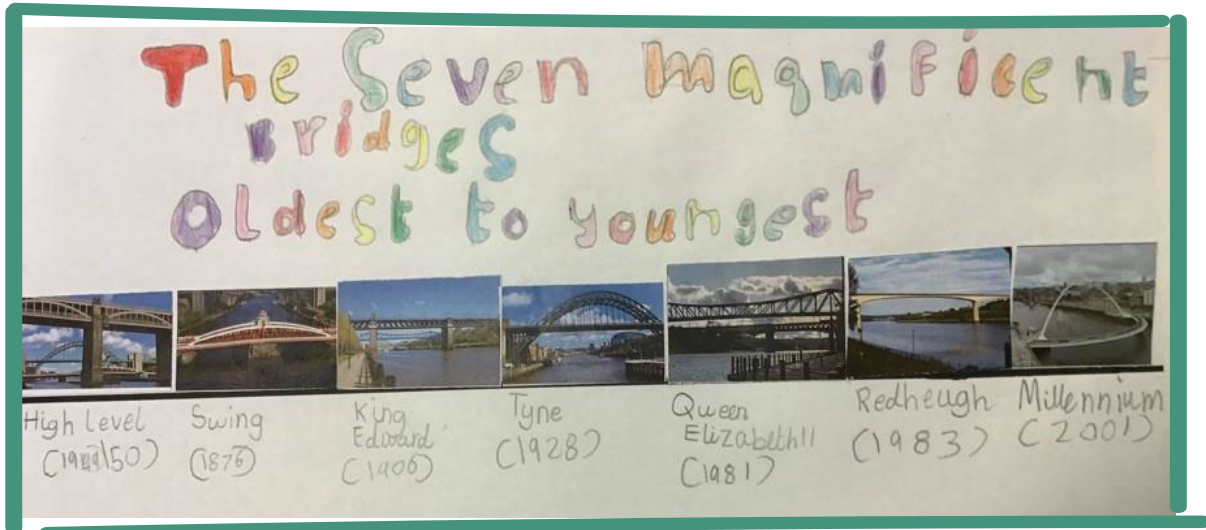 The Seven Magnificent
Bridges
Oldest to youngest
High Level
Swing
(1876)
King
Edward
(1906)
Tyne
(1928)
Queen
Elizabeth II
(1981)
Redheugh
(1983)
Millennium
(2001)